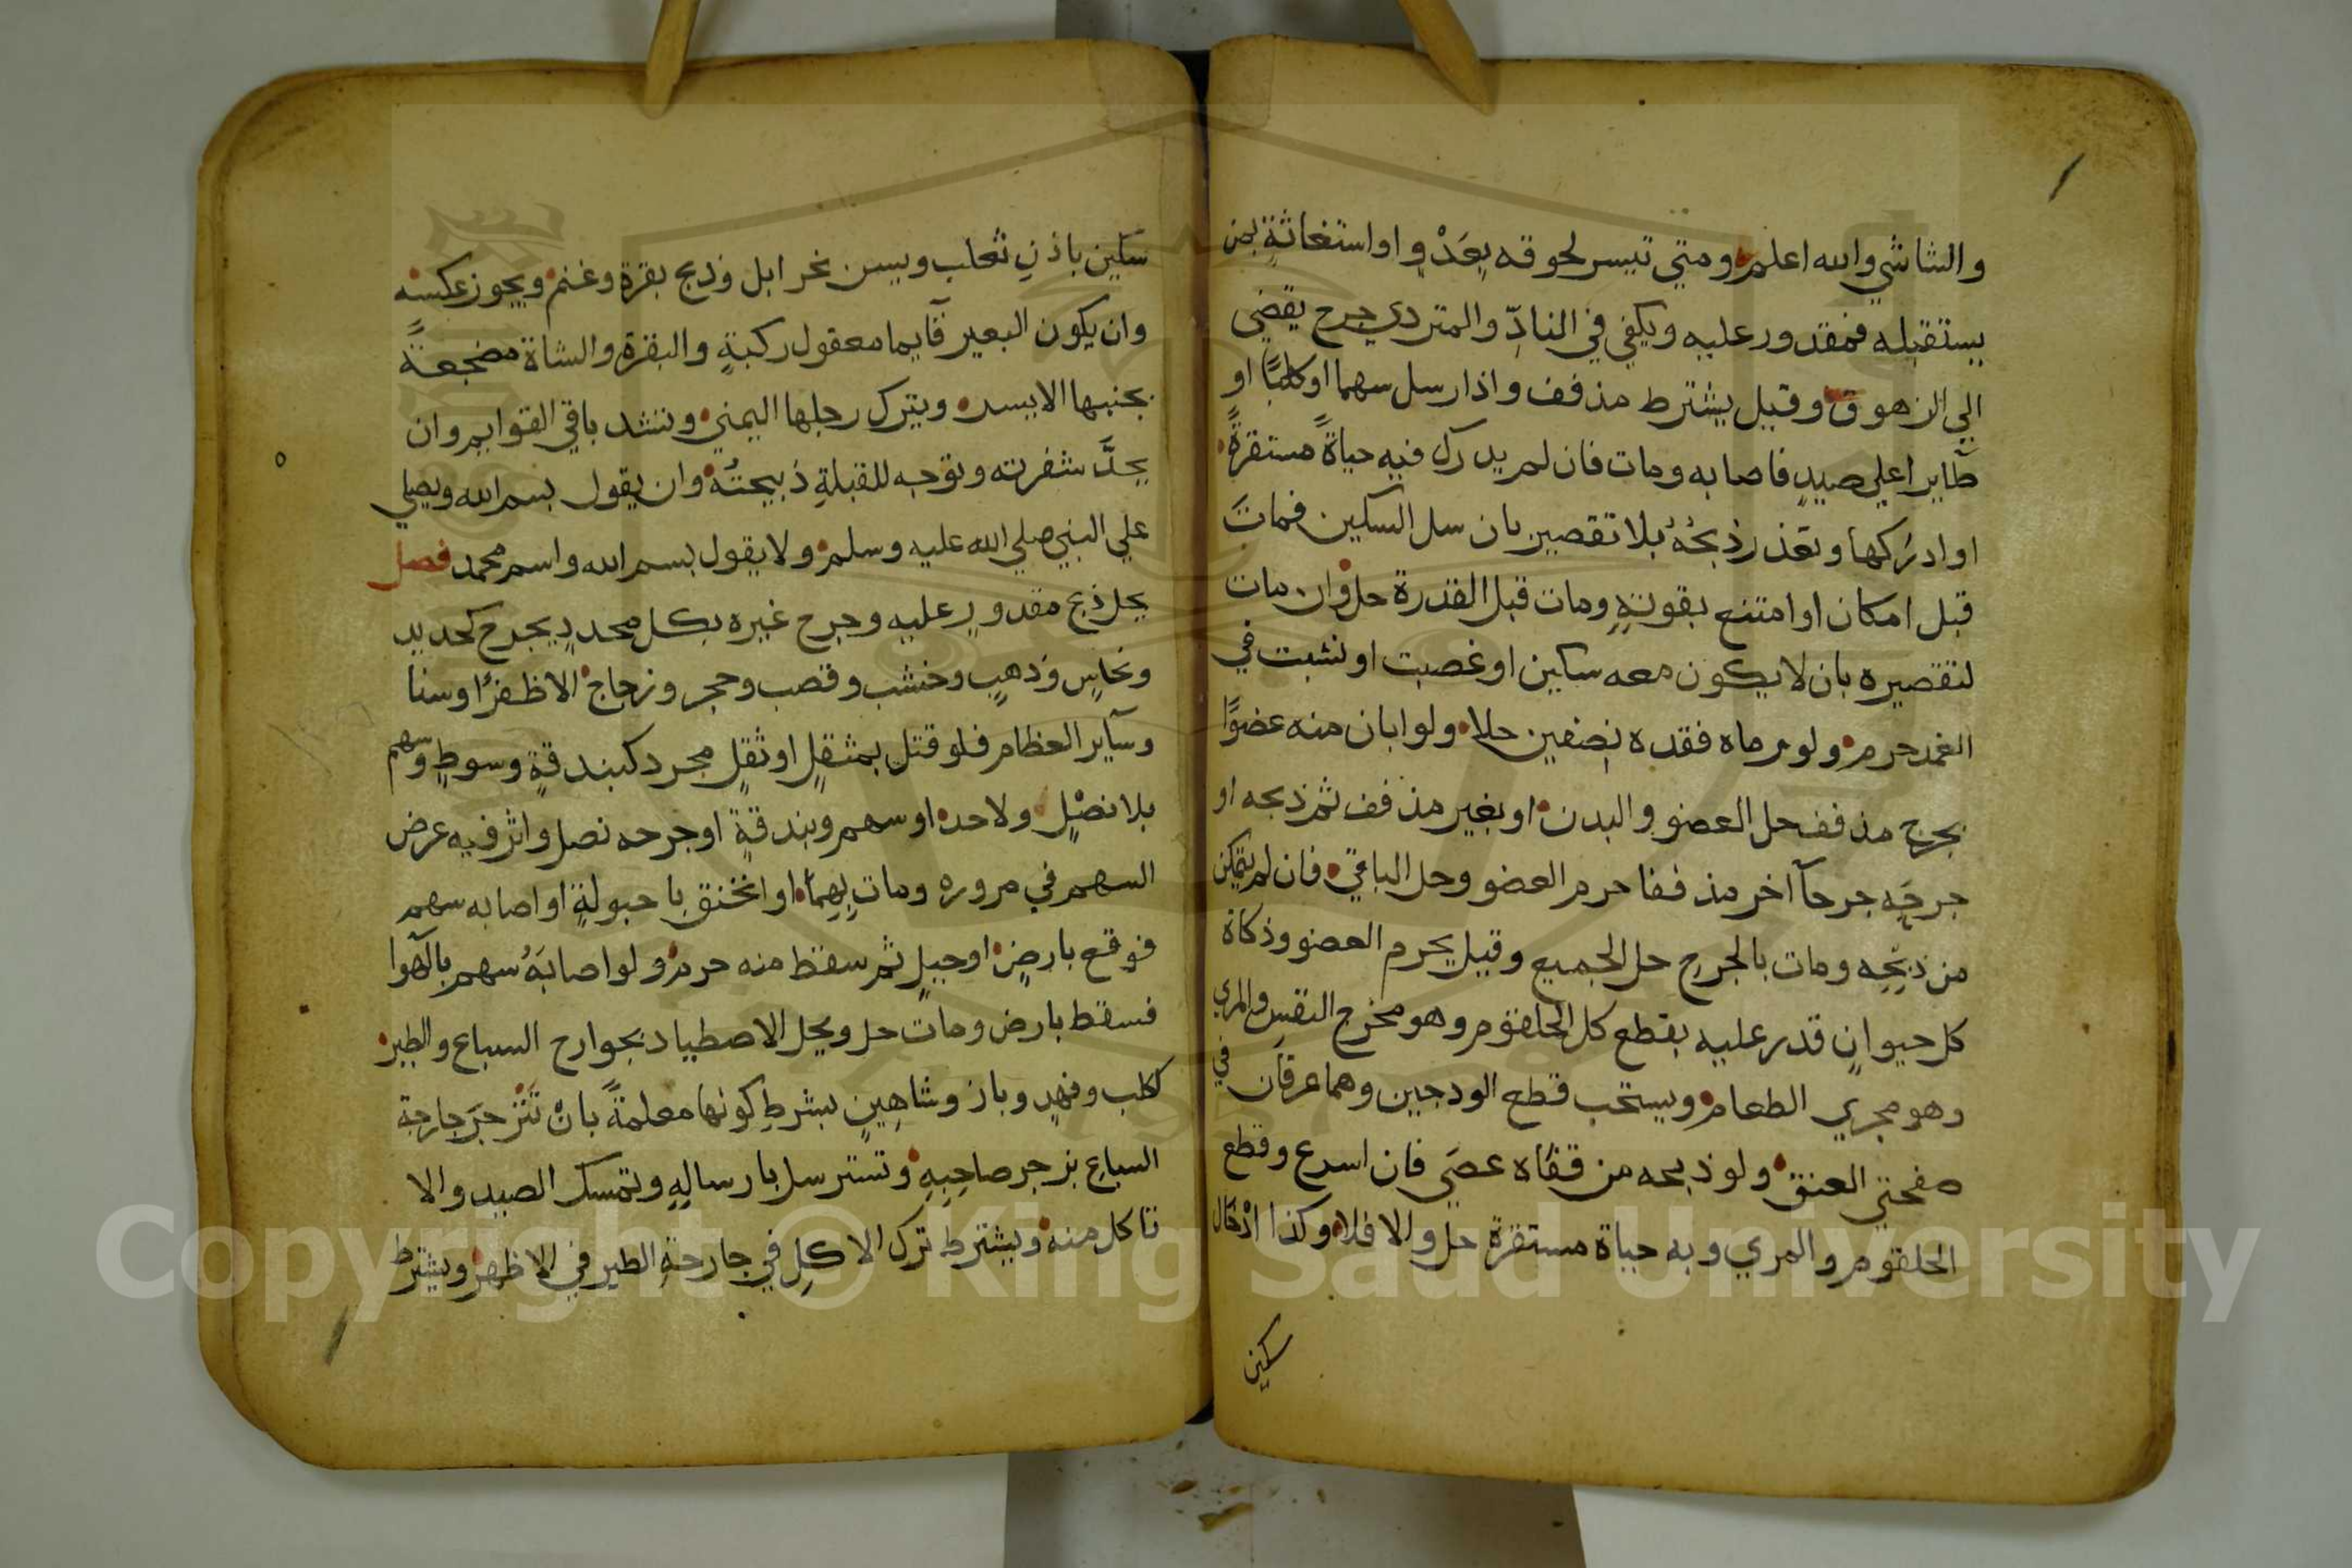 والشاشي والله اعلم ومتي تيسر لحوقه بِعَدْوٍ او استغاثةٍ بمن
يستقبله فمقدور عليه ويكفي في النادّ والمتردي جرح يقضي
الي الزهوق وقيل يشترط مذفف واذا رسل سهما او كلبًا او
طآيرا علي صيدٍ فاصابه ومات فان لم يدرك فيه حياةً مستقرةً
او ادركها وتعذر ذبحُهُ بلا تقصير بان سل السكين فماتَ
قبل امكان او امتنع بقوته ومات قبل القدرة حل وان مات
لتقصيره بان لا يكون معه سكين او غصبت او نشبت في
الغمد حرم ولو رماه فقده نصفين حلا ولو ابان منه عضوًا
بجرح مذفف حل العضو والبدن او بغير مذفف ثم ذبحه او
جرحَه جرحآ اخر مذففا حرم العضو وحل الباقي فان لم يتمكن
من ذبحِه ومات بالجرح حل الجميع وقيل يحرم العضو وذكاة
كل حيوانٍ قدر عليه بقطع كل الحلقوم وهو مخرج النفسِ والمري
وهو مجري الطعام ويستحب قطع الودجين وهما عرقان في
صفحتي العنق ولو ذبحه من قفاه عصَي فان اسرع وقطع
الحلقوم والمري وبه حياة مستقرة حل والا فلا وكذا ادْخال
سكين
سكين باذنِ ثعلب ويسن نحر ابل وذبح بقرة وغنم ويجوز عكسه
وان يكون البعير قآيما معقول ركبةٍ والبقرة والشاة مضجعةً
بجنبها الايسر ويترك رجلها اليمني وتشد باقي القوايم وان
يحدَّ شفرته وتوجه للقبلةِ ذبيحتُهُ وان يقول بسم الله ويصلي
علي النبي صلي الله عليه وسلم ولا يقول بسم الله واسم محمد فصل
يحل ذبح مقدورٍ عليه وجرح غيره بكل محددٍ يجرح كحديد
ونحاسٍ وذهبٍ وخشب وقصب وحجر وزجاج الا ظفرًا وسنا
وسآير العظام فلو قتل بمثقلٍ او ثقلٍ مجرد كبندقةٍ وسوطٍ وسهم
بلا نصْلٍ ولا حد او سهم وبندقةٍ او جرحه نصل واثر فيه عرض
السهم في مروره ومات بِهِمَا او انخنق باحبولةٍ او اصابه سهم
فوقع بارضٍ او جبلٍ ثم سقط منه حرم ولو اصابَهُ سهم بالهوآ
فسقط بارض ومات حل ويحل الاصطياد بجوارح السباع والطير
ككلب وفهدٍ وباز وشاهِينٍ بشرطِ كونها معلمةً بانْ تَنْزجرَ جارحة
السباعِ بزجر صاحِبِهِ وتسترسل بارسالِهِ وتمسك الصيد والا
تاكل منه ويشترط ترك الاكلِ في جارحةِ الطير في الاظهر ويشترط
Copyright © King Saud University